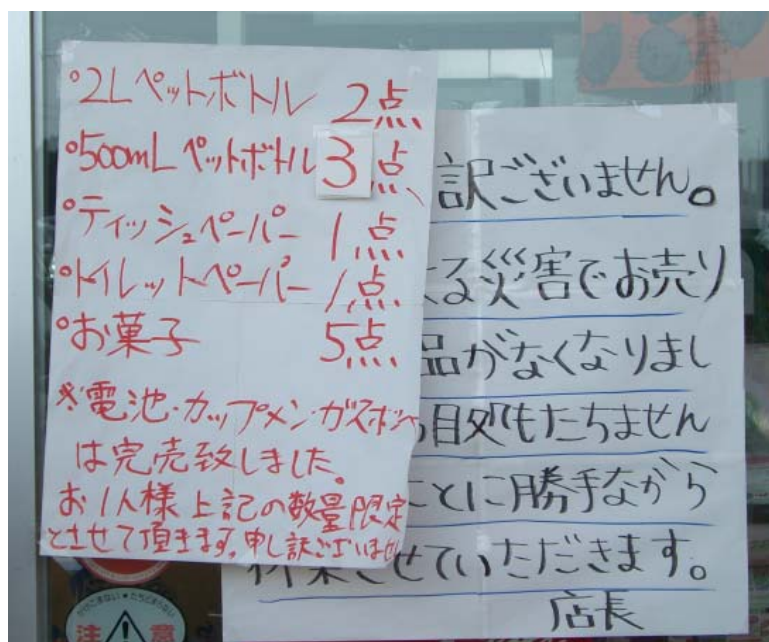 °2Lペットボトル 2点
°500mLペットボトル 3点
°ティッシュペーパー 1点
°トイレットペーパー 1点
°お菓子 5点
※電池・カップメン・ガスボンベ
は完売致しました。
お1人様上記の数量限定
とさせて頂きます。申し訳ございません
訳ございません。
る災害でお売り
品がなくなりまし
目処もたちません
ことに勝手ながら
させていただきます。
店長
注 意